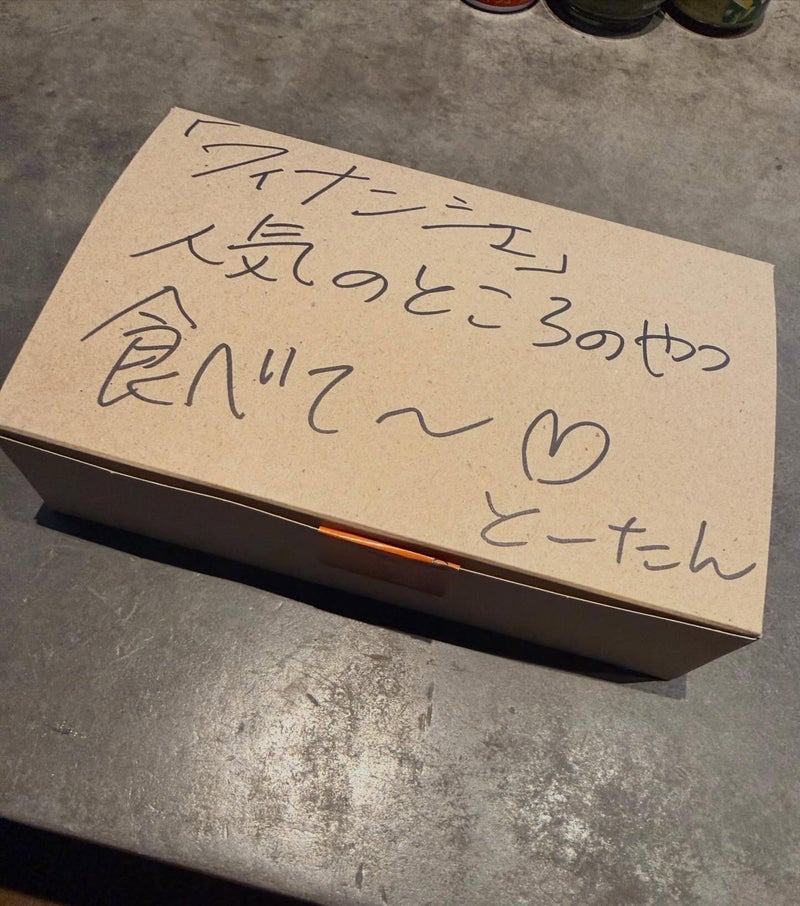 「フィナンシェ」
人気のところのやつ
食べて〜♡
とーたん